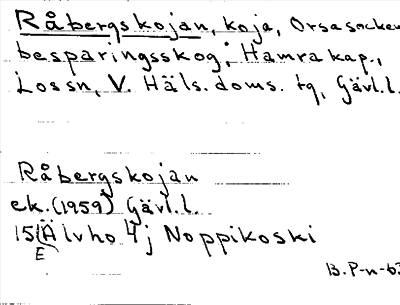 Råbergskojan, koja, Orsa socken
besparingsskog; Hamra kap.,
Lossn, V. Häls. doms. tg, Gävl.l.
Råbergskojan
ek. (1959) Gävl.l.
15 (Ä lvho 4j Noppikoski
E
B. P-n-63